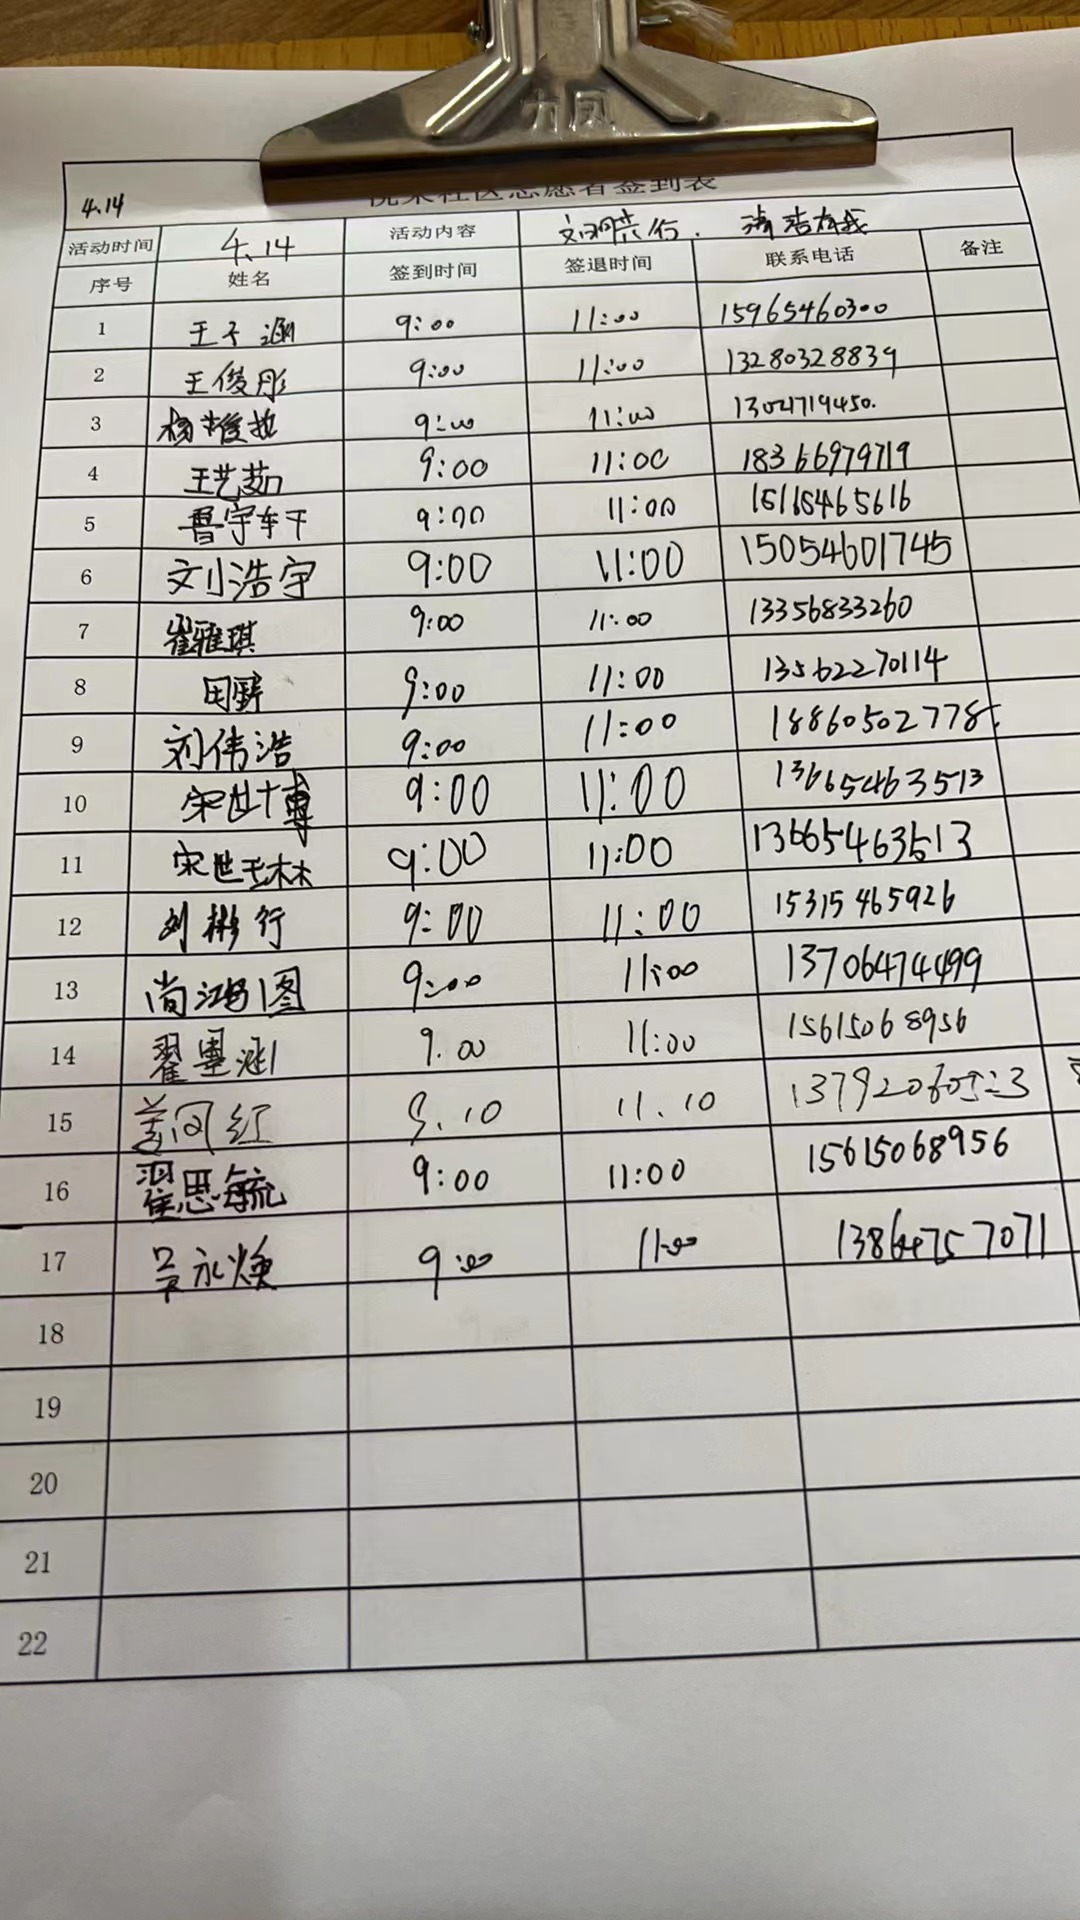 力风
社区志愿者签到表
4.14
活动时间 4.14 活动内容 文明 行. 清洁有我
序号 姓名 签到时间 签退时间 联系电话 备注
1 王子涵 9:00 11:00 15965460300
2 王俊彤 9:00 11:00 13280328839
3 杨 9:00 11:00
4 王艺茹 9:00 11:00 18366979719
5 鲁宇轩 9:00 11:00
6 刘浩宇 9:00 11:00 15054601745
7 崔雅琪 9:00 11:00 13356833260
8 田野 9:00 11:00 13562270114
9 刘伟浩 9:00 11:00 18860502778
10 宋世博 9:00 11:00 13665463513
11 宋世琳 9:00 11:00 13665463513
12 刘彬行 9:00 11:00 15315465926
13 尚鸿图 9:00 11:00 13706474499
14 翟墨涵 9.00 11:00 15615068956
15 姜凤红 9.10 11.10
16 翟思毓 9:00 11:00 15615068956
17 吴永焕 9:00 11:00
18
19
20
21
22